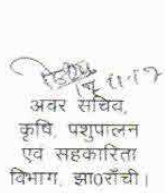 अवर सचिव,
कृषि, पशुपालन
एवं सहकारिता
विभाग, झा0राँची।